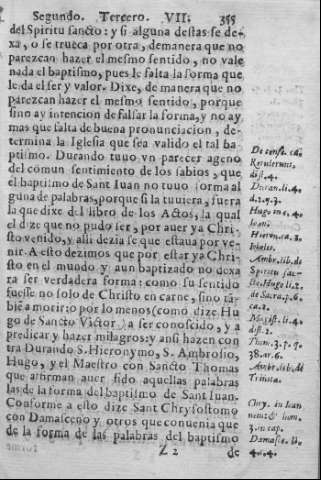 Segundo. Tercero. VII. 355
del Spiritu sancto: y si alguna destas se de-
xa, o se trueca por otra, demanera que no
parezcan hazer el mesmo sentido, no vale
nada el baptismo, pues le falta la forma que
le da el ser y valor. Dixe, de manera que no
parezcan hazer el mesmo sentido, porque
sino ay intencion de falsar la forma, y no ay
mas que falta de buena pronunciacion, de-
termina la Iglesia que sea valido el tal ba
ptismo. Durando tuuo vn parecer ageno
del comun sentimiento de los sabios, que
el baptismo de Sant Iuan no tuuo forma al
guna de palabras, porque si la tuuiera, fuera
la que dixe del libro de los Actos, la qual
el dize que no pudo ser, por auer ya Chri-
sto venido, y alli dezia se que estaua por ve-
nir. A esto dezimos que por estar ya Chri-
sto en el mundo y aun baptizado no dexa
ra ser verdadera forma: como su sentido
fuesse no solo de Christo en carne, sino tã-
biẽ a morir: o por lo menos (como dize Hu
go de Sancto Victor) a ser conoscido, y a
predicar y hazer milagros: y ansi hazen con
tra Durando S. Hieronymo, S. Ambrosio,
Hugo, y el Maestro con Sancto Thomas
que affirman auer sido aquellas palabras
las de la forma del baptismo de Sant Iuan.
Conforme a esto dize Sant Chrysostomo
con Damasceno y otros que conuenia que
de la forma de las palabras del baptismo
Z 2 de
De conse. ca.
Retulerunt,
dist. 4.
Duran. li. 4.
d. 2. q. 3.
Hugo in c. 4.
Ioan.
Hieron. ca. 2.
Iohelis.
Ambr. lib. de
Spiritu sãc-
to. Hugo li. 2.
de Sacra. p. 6.
ca. 2.
Magist. li. 4.
dist. 2.
Thom. 3. p. q.
38. ar. 6.
Ambr. lib. de
Trinita.
Chry. in Ioan
nem & hom.
3. in cap.
Damasce. li.
4. c. 4.